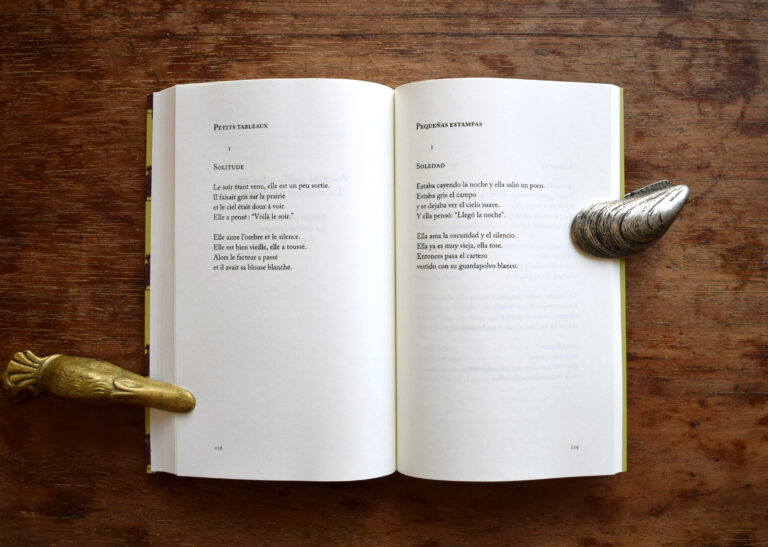 PETITS TABLEAUX
1
SOLITUDE
Le soir étant venu, elle est un peu sortie.
Il faisait gris sur la prairie
et le ciel était doux à voir.
Elle a pensé: “Voilà le soir.”
Elle aime l'ombre et le silence.
Elle est bien vieille, elle a toussé.
Alors le facteur a passé
et il avait sa blouse blanche.
128
PEQUEÑAS ESTAMPAS
1
SOLEDAD
Estaba cayendo la noche y ella salió un poco.
Estaba gris el campo
y se dejaba ver el cielo suave.
Y ella pensó: “Llegó la noche”.
Ella ama la oscuridad y el silencio.
Ella ya es muy vieja, ella tose.
Entonces pasa el cartero
vestido con su guardapolvo blanco.
129